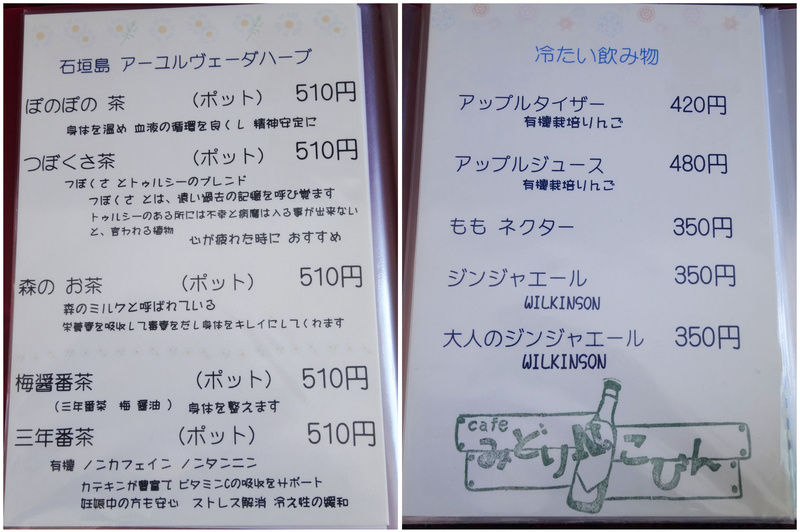 石垣島 アーユルヴェーダハーブ
ぽのぽの 茶 (ポット) 510円
身体を温め 血液の循環を良くし 精神安定に
つぼくさ茶 (ポット) 510円
つぼくさ とトゥルシーのブレンド
つぼくさ とは、遠い過去の記憶を呼び覚ます
トゥルシーのある所には不幸と病魔は入る事が出来ない
と、言われる植物
心が疲れた時に おすすめ
森の お茶 (ポット) 510円
森のミルクと呼ばれている
栄養素を吸収して毒素をだし身体をキレイにしてくれます
梅醤番茶 (ポット) 510円
(三年番茶 梅 醤油) 身体を整えます
三年番茶 (ポット) 510円
有機 ノンカフェイン ノンタンニン
カテキンが豊富で ビタミンCの吸収をサポート
妊娠中の方も安心 ストレス解消 冷え性の緩和
冷たい飲み物
アップルタイザー 420円
有機栽培りんご
アップルジュース 480円
有機栽培りんご
もも ネクター 350円
ジンジャエール 350円
WILKINSON
大人のジンジャエール 350円
WILKINSON
cafe
みどりの こびん